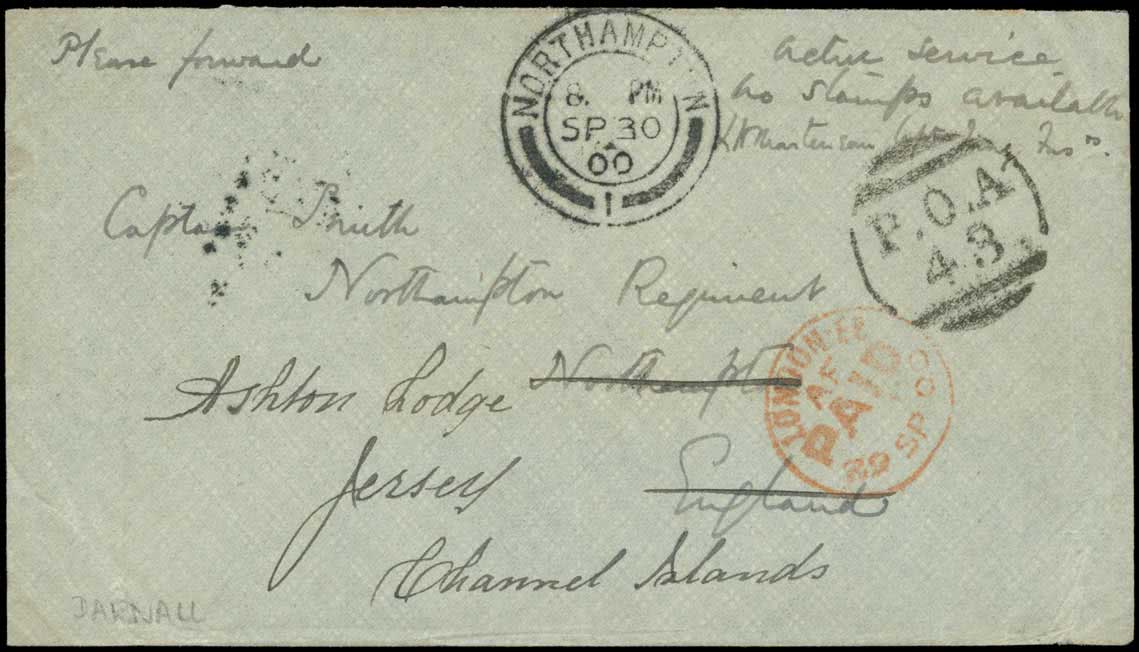 Please forward
Active service
No stamps available
NORTHAMPTON
8. PM
SP 30
00
1
P.O.A
43
Captain Smith
Northampton Regiment
Ashton Lodge Northampton
Jersey England
Channel Islands
LONDON. EC
PAID
29 SP 00
DARNALL